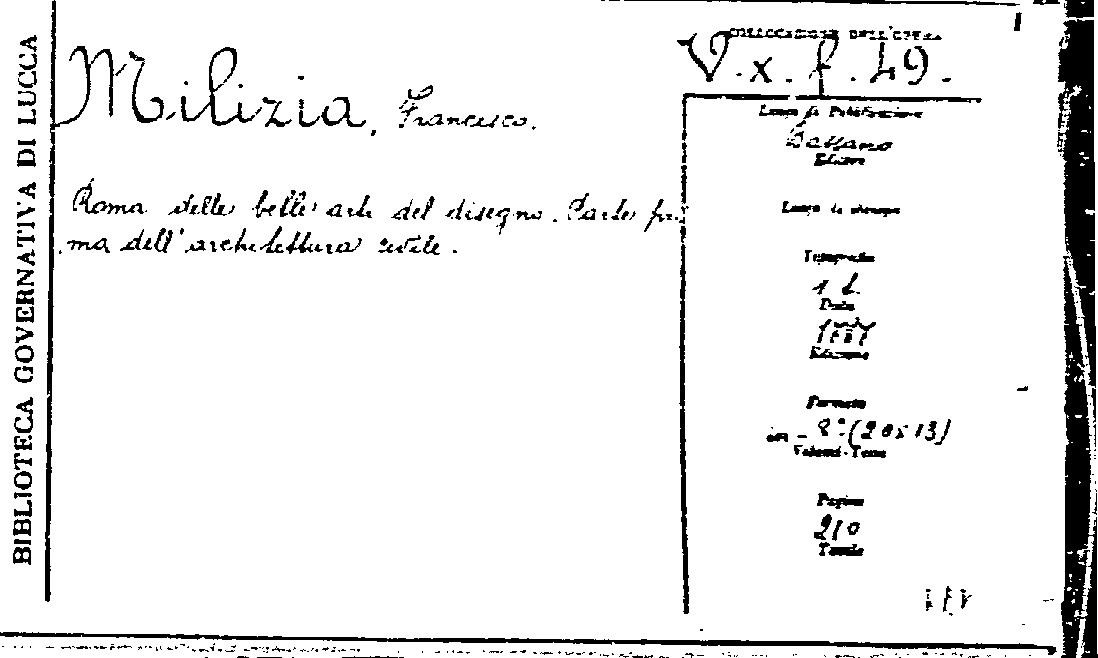 BIBLIOTECA GOVERNATIVA DI LUCCA
COLLOCAZIONE DELL'OPERA
V. x. f. 49.
Milizia, Francesco.
Luogo di Pubblicazione
Bassano
Editore
Roma delle belle arti del disegno. Parte pri
ma dell'architettura civile.
Luogo di stampa
Tipografia
Data
Edizione
Formato
in - 8° (20x13)
Volumi - Tomi
Pagine
210
Tavole